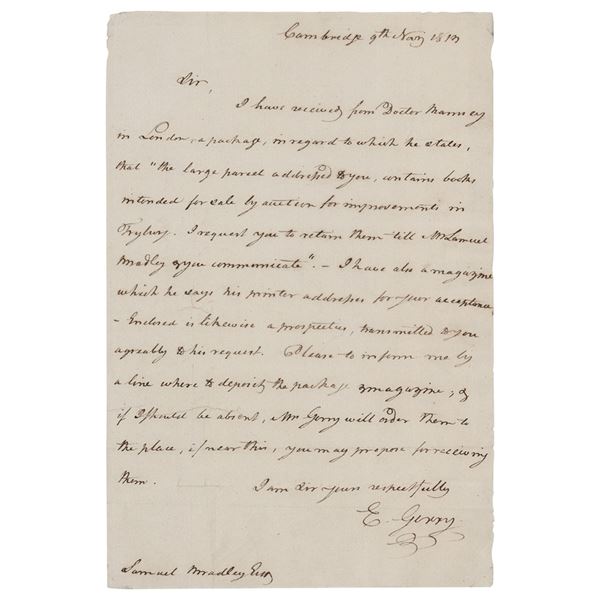 Cambridge 9th Nov 1813
Sir,
I have received from Doctor
in London, a package, in regard to which he states,
that "the large parcel addressed to you, contains books
intended for sale by auction for improvements in
Fryburg. I request you to retain them till Mr Samuel
Bradley & you communicate". - I have also a magazine
which he says his printer addresses for your acceptance,
- Enclosed is likewise a prospectus, transmitted to you
agreably to his request. Please to inform me by
a line where to deposit the package & magazine; &
if I should be absent, Mrs Gerry will order them to
the place, if near this, you may propose for receiving
them.
I am Sir yours respectfully
E. Gerry
Samuel Bradley Esq